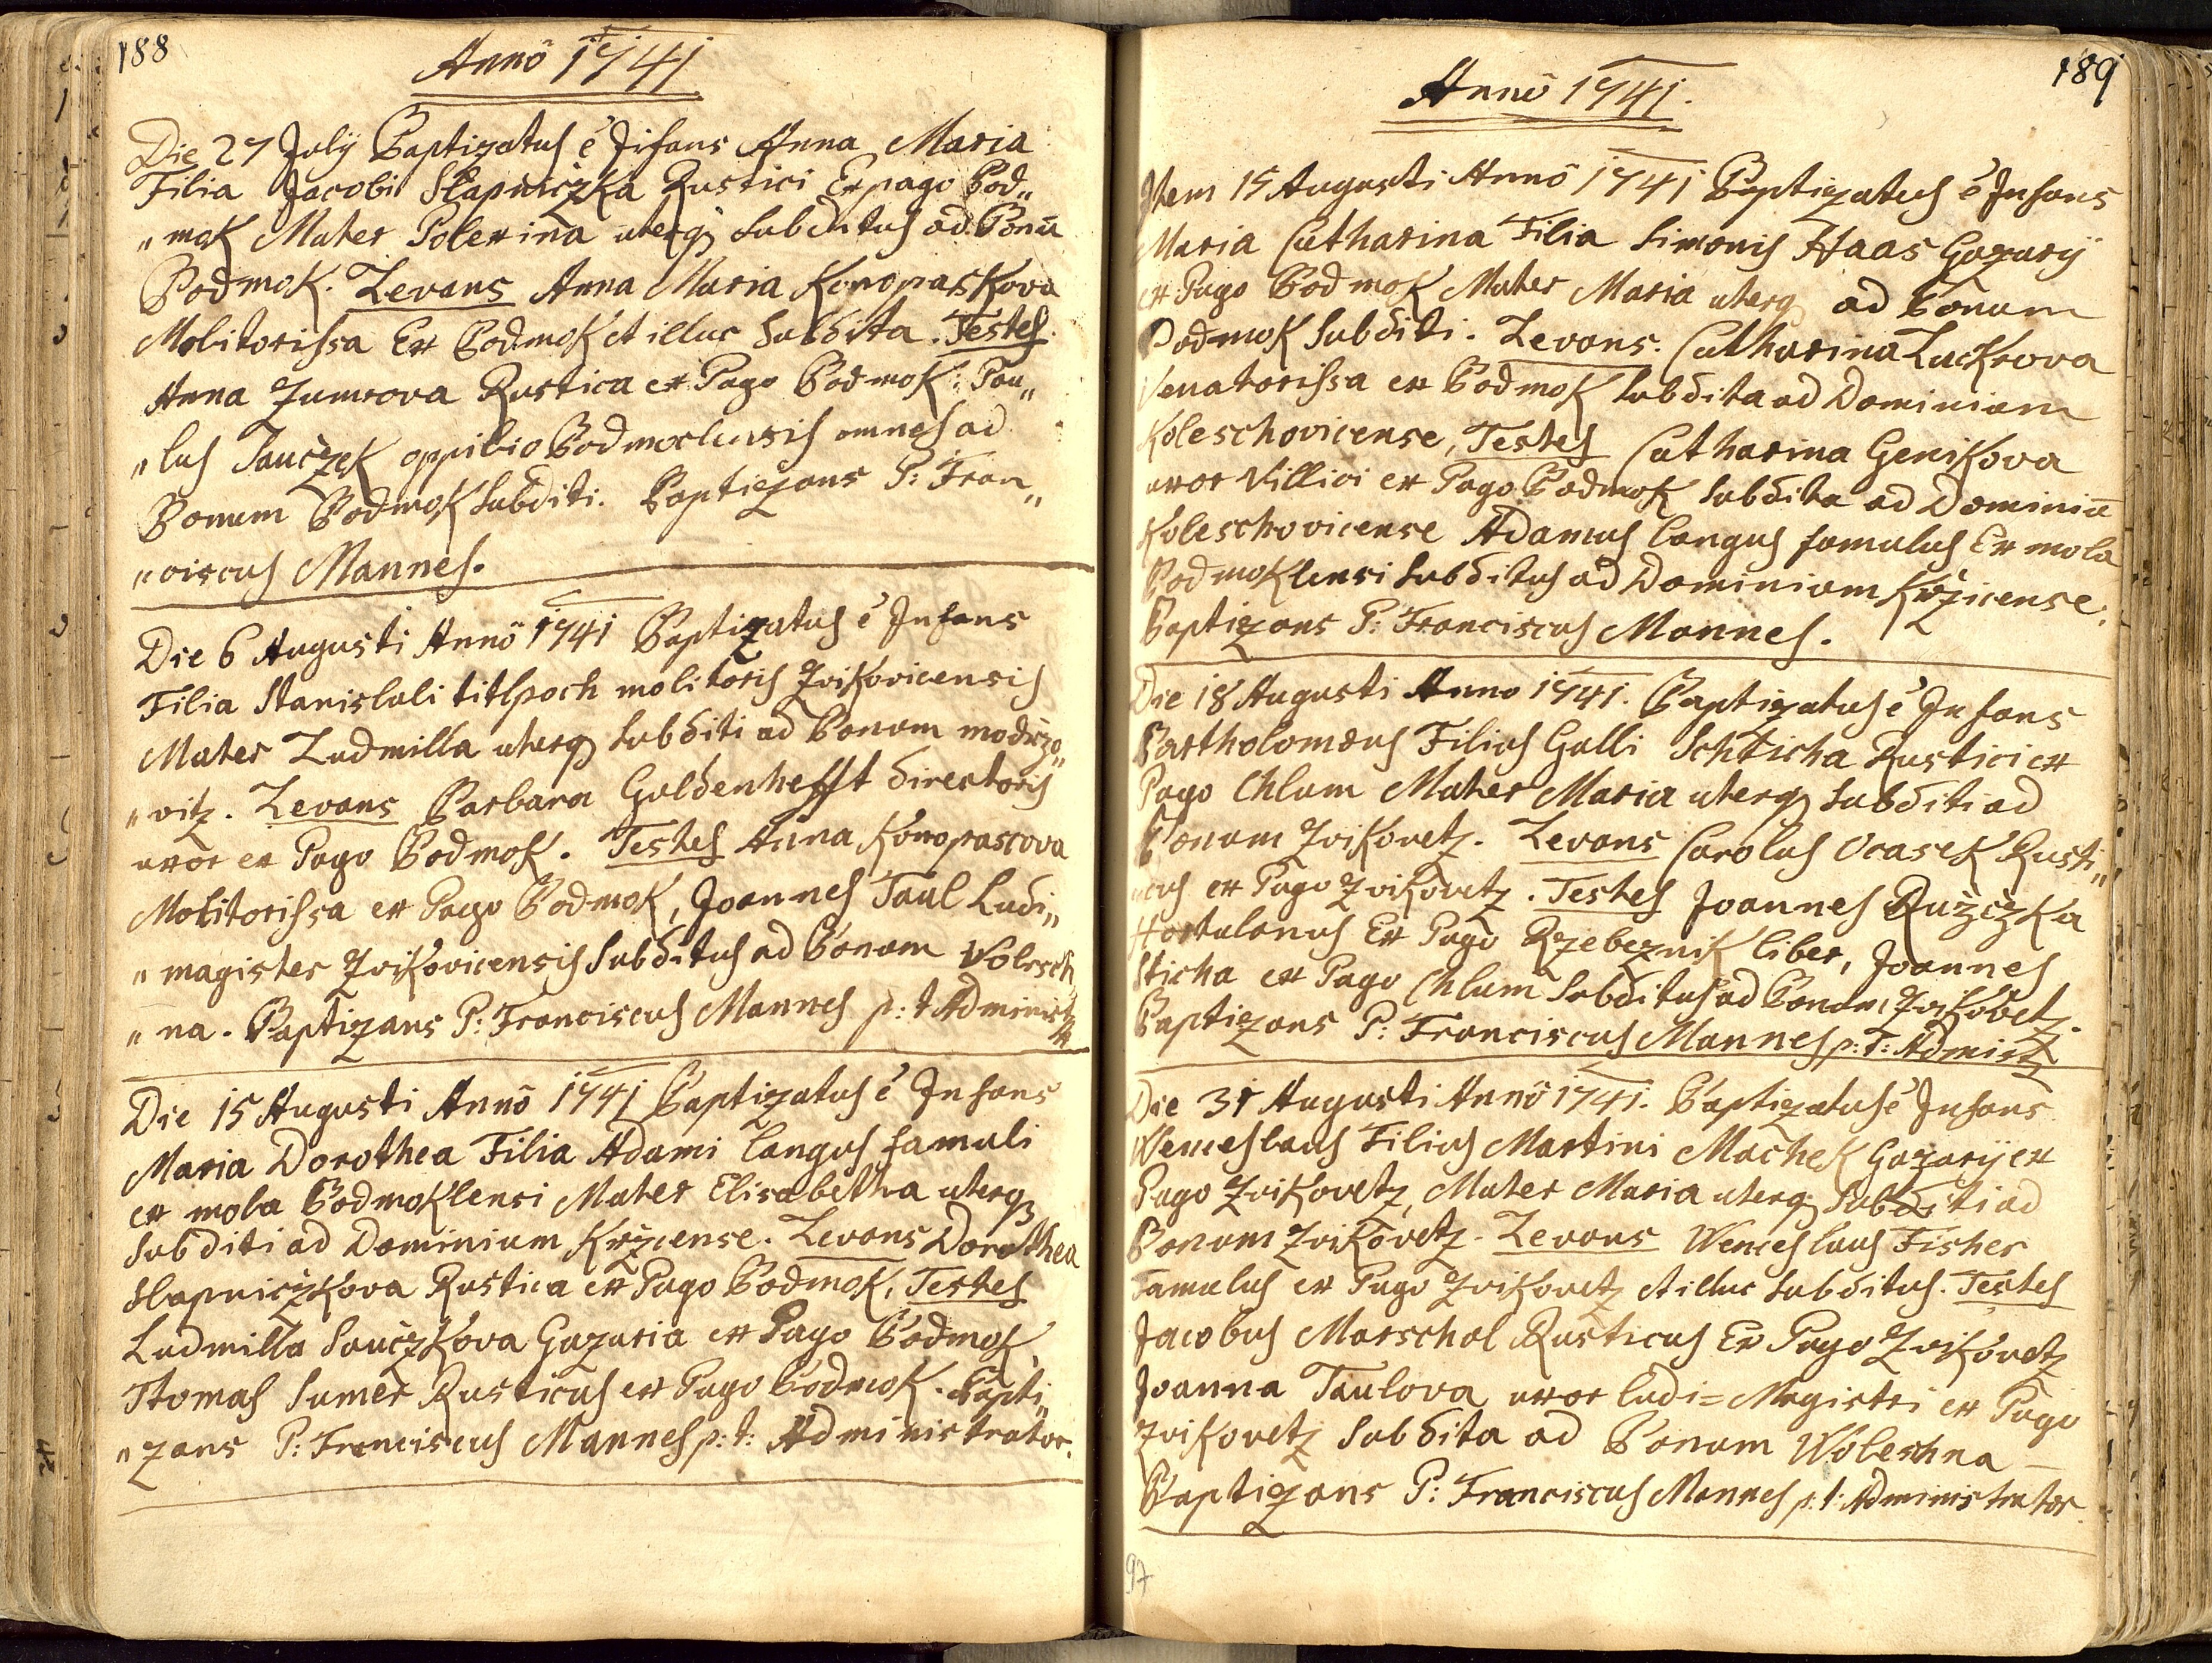 188
Annô 1741
Die 27 July Baptizatus é Jnfans Anna Maria
Filia Jacobi Slapniczka Rustici Ex pago Bod„
„mok Mater Polexina uterq; Subditus ad Bonū
Bodmok. Levans Anna Maria Konopaskova
Molitorissa Ex Bodmok et illuc Subdita. Testes
Anna Zumrova Rustica ex Pago Bodmok: Pau„
„lus Saučzek oppilio Bodmoclensis omnes ad
Bonum Bodmok Subditi. Baptizans P: Fran„
„ciscus Mannes.
Die 6 Augusti Annô 1741 Baptizatus é Jnfans
Filia Stanislai titlpoch molitoris Zvikovicensis
Mater Ludmilla uterq; Subditi ad Bonum modrzo„
„vitz. Levans Barbara Guldenhefft directoris
uxor ex Pago Bodmok. Testes Anna Konopascova
Molitorissa ex Pago Bodmok, Joannes Taul Ludi„
„magister Zvikovicensis Subditus ad Bonum Wolesch
„na. Baptizans P: Franciscus Mannes p: t Administ
Die 15 Augusti Annô 1741 Baptizatus é Jnfans
Maria Dorothea Filia Adami Langus famuli
ex mola Bodmoklensi Mater Elisabetha uterq;
Subditi ad Dominium Krzicense. Levans Dorothea
Slapniczkova Rustica ex Pago Bodmok, Testes
Ludmilla Saučzkova Gazaria ex Pago Bodmok,
Thomas Sumer Rusticus ex Pago Bodmok. Bapti„
„zans P: Franciscus Mannes p: t: Administrator.
189
Annô 1741.
Jtem 15 Augusti Annô 1741 Baptizatus é Jnfans
Maria Catharina Filia Simonis Haas Gazarij
ex Pago Bodmok Mater Maria uterq; ad Bonum
Podmok Subditi. Levans. Catharina Luckrova
Venatorissa ex Bodmok Subdita ad Dominium
Koleschovicense, Testes Catharina Genikova
uxor Villici ex Pago Bodmok Subdita ad Dominiū
Koleschovicense Adamus Langus famulus Ex mola
Bodmoklensi Subditus ad Dominium Krzicense.
Baptizans P: Franciscus Mannes.
Die 18 Augusti Anno 1741. Baptizatus é Jnfans
Bartholomæus Filius Galli Schticha Rustici ex
Pago Chlum Mater Maria uterq; Subditi ad
Bonum Zvikovetz. Levans Carolus Ocasek Rusti„
„cus ex Pago Zvikovetz. Testes Joannes Ružiczka
Hortulanus Ex Pago Rzebeznik liber, Joannes
Sticha ex Pago Chlum Subditus ad Bonum Zvikovetz.
Baptizans P: Franciscus Mannes p: T: Admist
Die 31 Augusti Annô 1741. Baptizatus é Jnfans
Wenceslaus Filius Martini Machek Gazarij ex
Pago Zvikovetz, Mater Maria uterq; Subditi ad
Bonum Zvikovetz. Levans Wenceslaus Fisher
Famulus ex Pago Zvikovetz et illuc Subditus. Testes
Jacobus Marschal Rusticus Ex Pago Zvikovetz
Joanna Taulova uxor ludi=Magistri ex Pago
Zvikovetz Subdita ad Bonum Woleschna
Baptizans P: Franciscus Mannes p: t: Administrator.
97